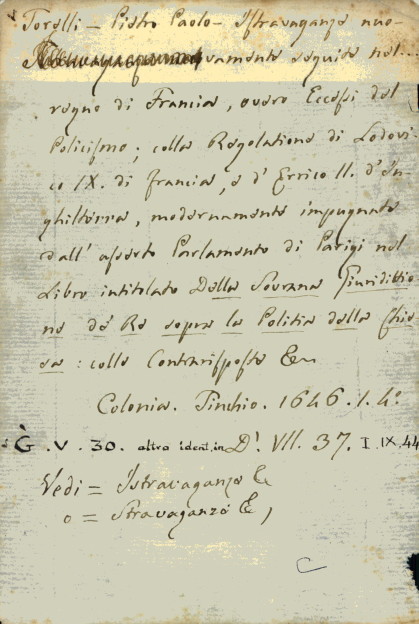 Torelli - Pietro Paolo - Istravaganze nuo-
vamente seguite nel...
regno di Francia, overo Eccessi del
Policismo; colla Regolatione di Lodovi-
co IX. di Francia, e d'Errico II. d'In-
ghilterra, modernamente impugnate
dall' aserto Parlamento di Parigi nel
Libro intitolato Della Sovrana Giuridittio
ne de Re sopra la Politia della Chie
sa: colle Contrarisposte &
Colonia. Pinchio. 1646. 1. 4º
G. V. 30. altro ident. in D'. VII. 37. I. IX. 44
Vedi = Istravaganze &
o = Stravaganze &,